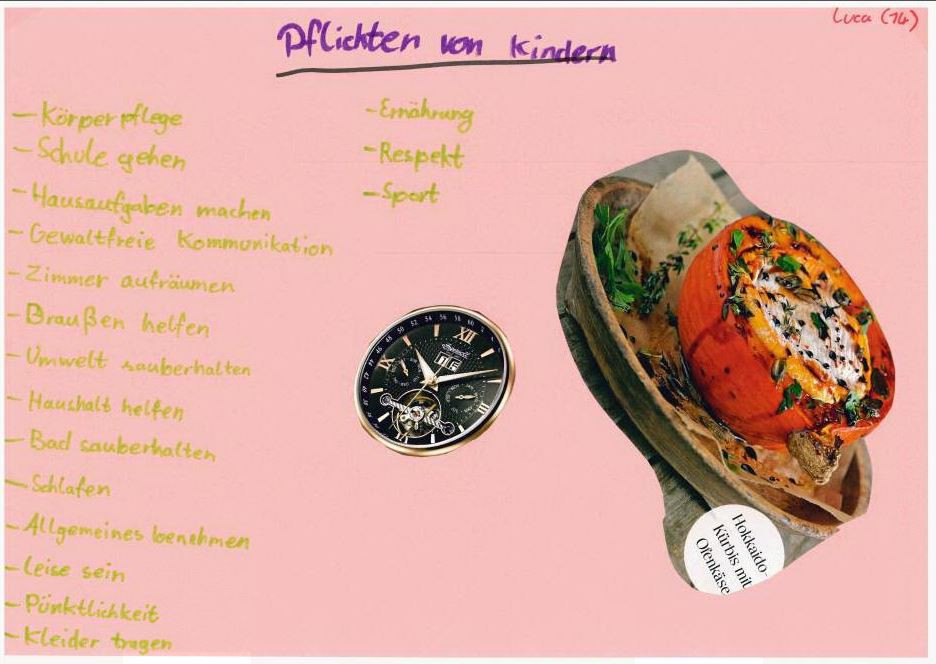 Luca (14)
Pflichten von Kindern
- Körperpflege
- Schule gehen
- Hausaufgaben machen
- Gewaltfreie Kommunikation
- Zimmer aufräumen
- Draußen helfen
- Umwelt sauberhalten
- Haushalt helfen
- Bad sauberhalten
- Schlafen
- Allgemeines benehmen
- Leise sein
- Pünktlichkeit
- Kleider tragen
- Ernährung
- Respekt
- Sport
XII
Hokkaido-
Kürbis mit
Ofenkäse